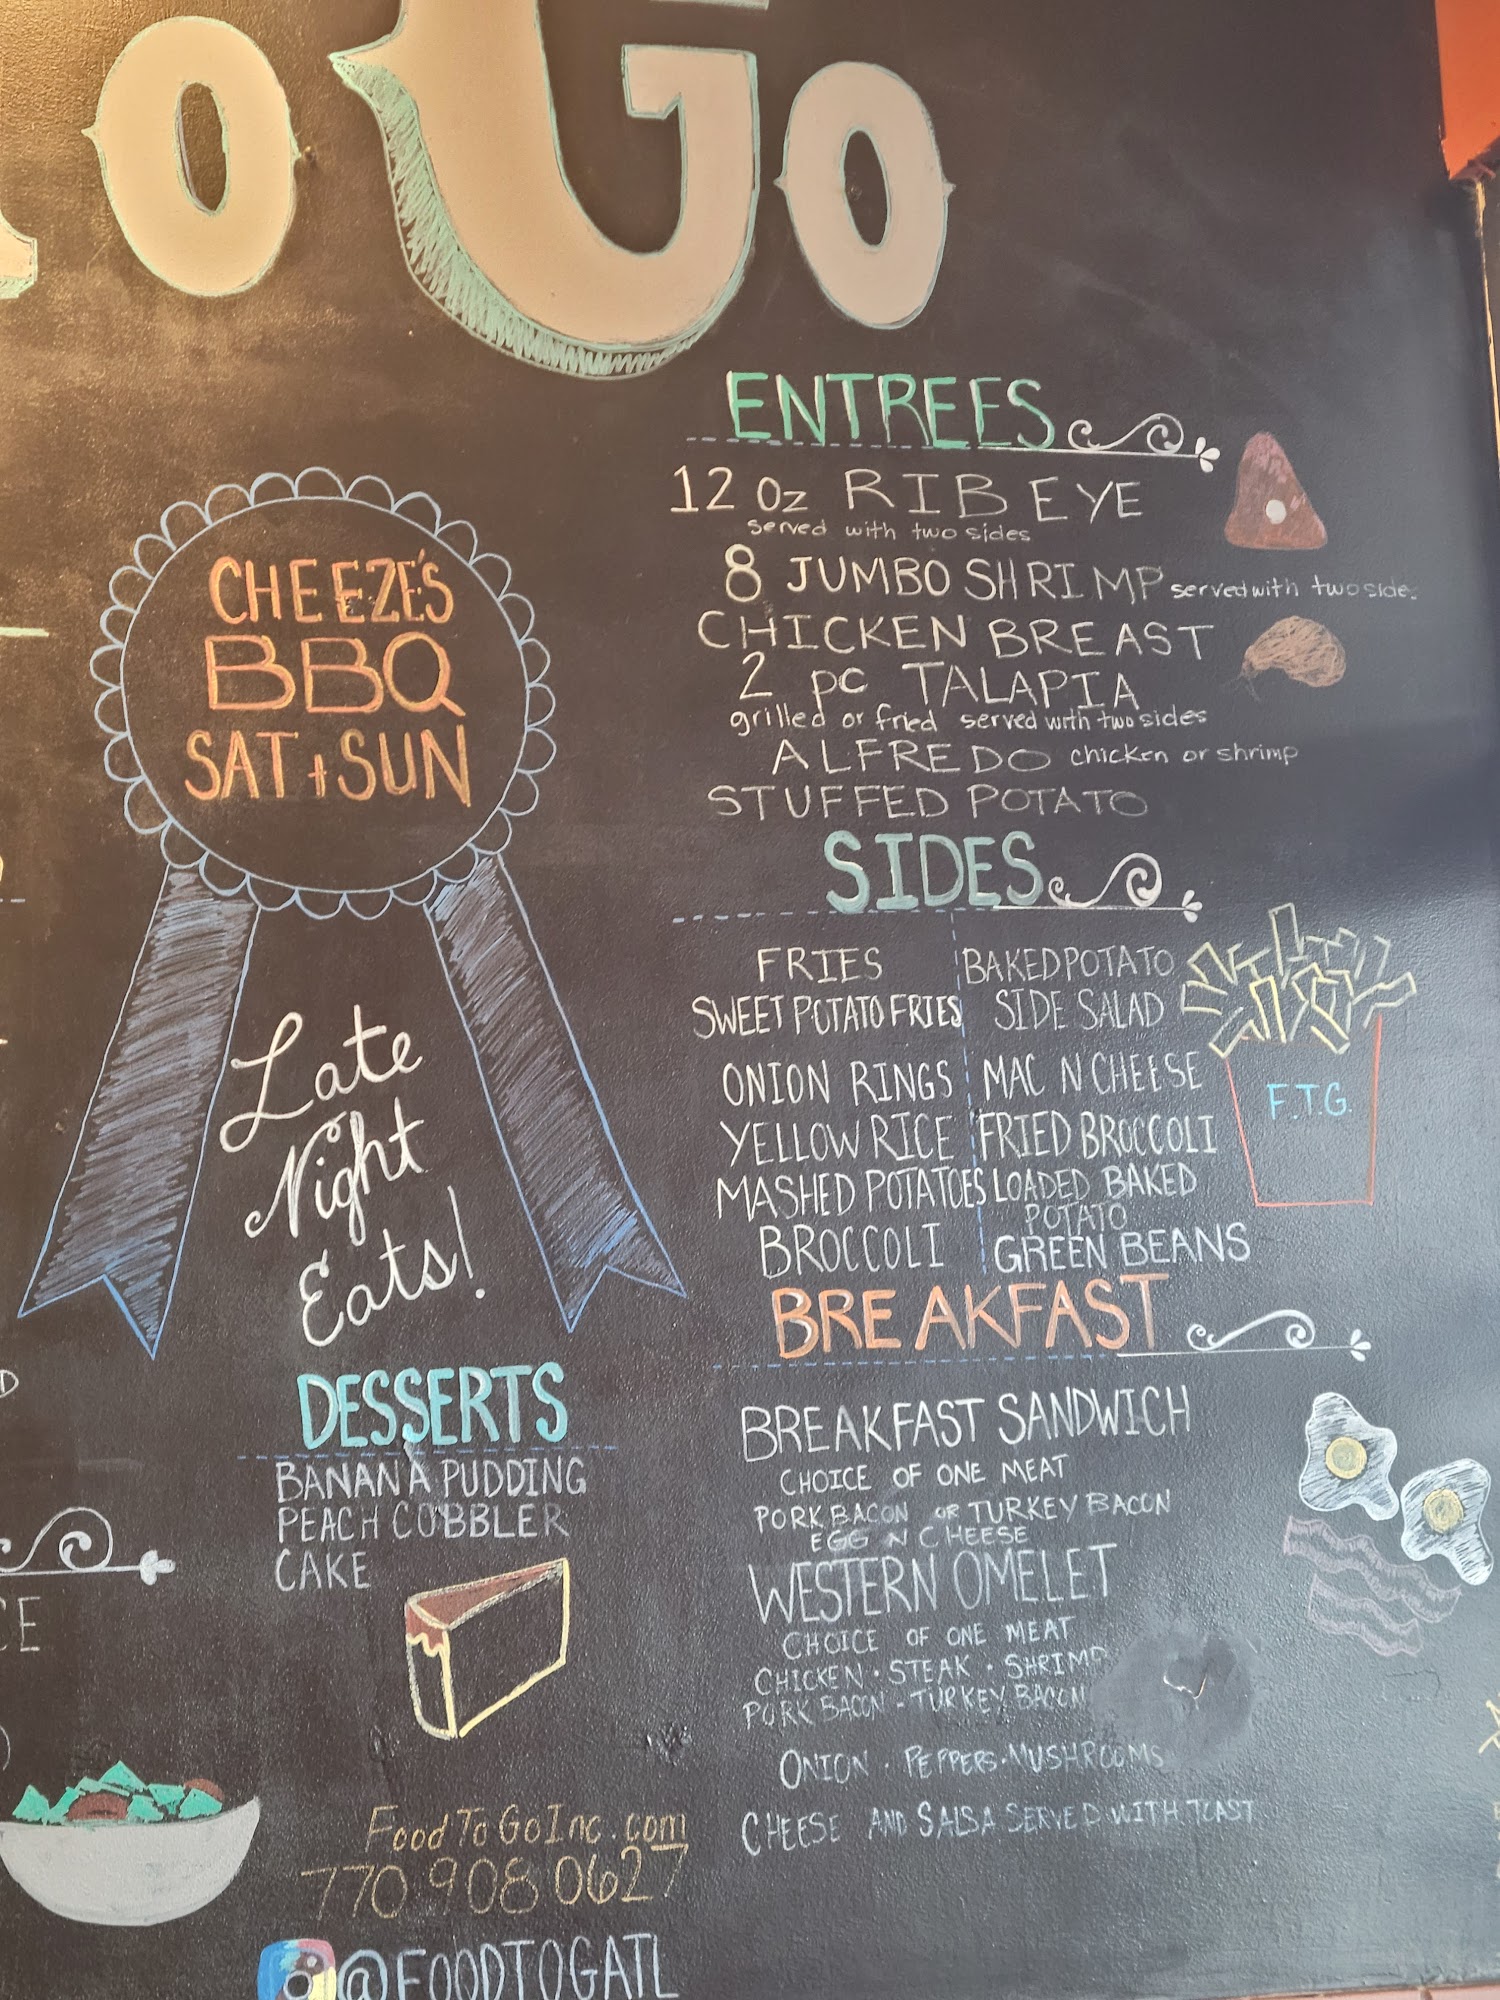 To Go
CHEEZE'S
BBQ
SAT + SUN
Late
Night
Eats!
DESSERTS
BANANA PUDDING
PEACH COBBLER
CAKE
FoodToGoInc.com
770 908 0627
@FOODTOGATL
ENTREES
12 Oz RIB EYE
served with two sides
8 JUMBO SHRIMP served with two side
CHICKEN BREAST
2 pc TALAPIA
grilled or fried served with two sides
ALFREDO chicken or shrimp
STUFFED POTATO
SIDES
FRIES
SWEET POTATO FRIES
ONION RINGS
YELLOW RICE
MASHED POTATOES
BROCCOLI
BAKED POTATO
SIDE SALAD
MAC N CHEESE
FRIED BROCCOLI
LOADED BAKED
POTATO
GREEN BEANS
F.T.G.
BREAKFAST
BREAKFAST SANDWICH
CHOICE OF ONE MEAT
PORK BACON OR TURKEY BACON
EGG N CHEESE
WESTERN OMELET
CHOICE OF ONE MEAT
CHICKEN · STEAK · SHRIMP
PORK BACON - TURKEY BACON
ONION · PEPPERS · MUSHROOMS
CHEESE AND SALSA SERVED WITH TOAST